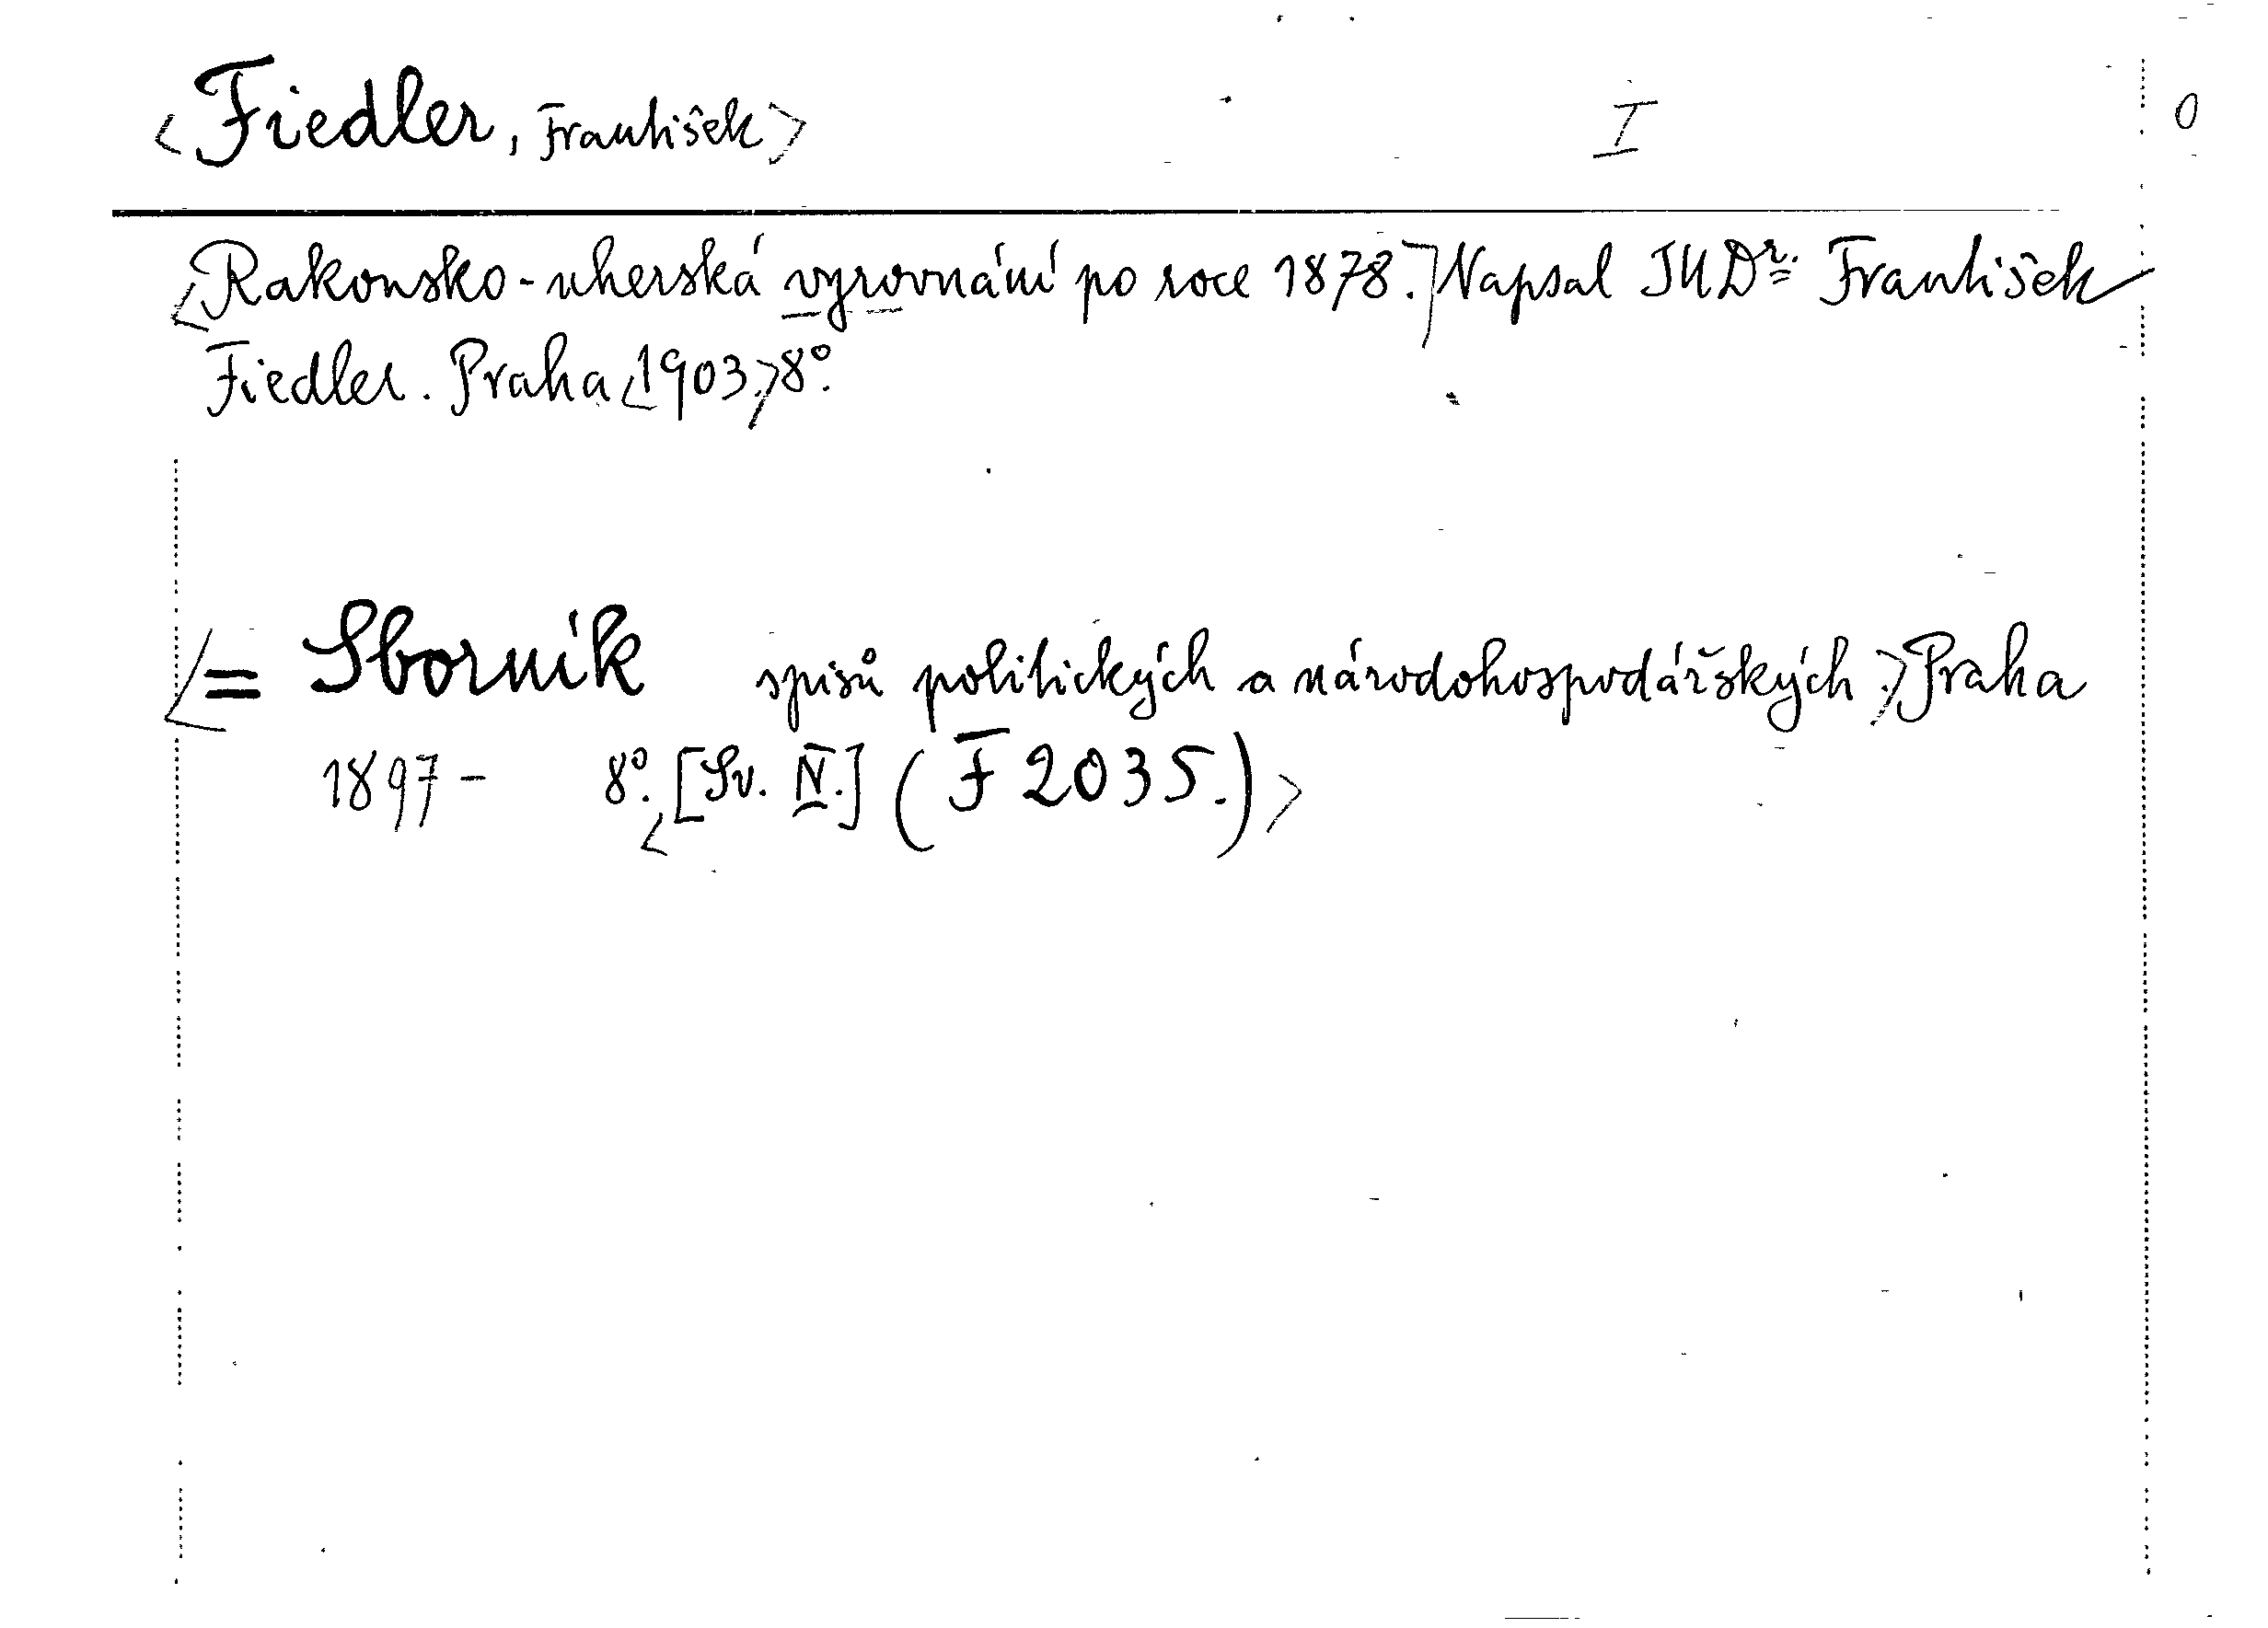 <Fiedler, František> I 0
<Rakousko-uherská vyrovnání po roce 1878.> Napsal JUDr. František
Fiedler. Praha <1903.> 8°.
<= Sborník spisů politických a národohospodářských.> Praha
1897- 8°. <[Sv. IV.] (F 2035.)>